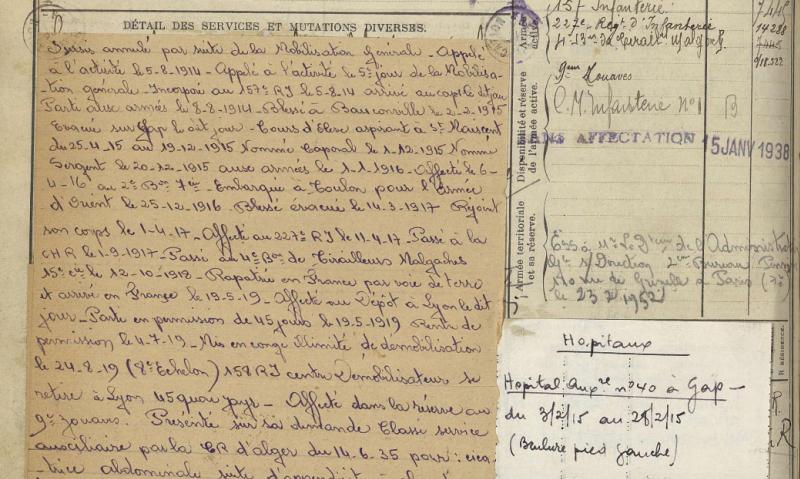 DÉTAIL DES SERVICES ET MUTATIONS DIVERSES.
Sursis annulé par suite de la Mobilisation Générale - Appelé
à l'activité le 5-8-1914 - Appelé à l'activité le 5e jour de la Mobilisa-
tion générale - Incorporé au 157e RI le 5-8-14 arrivé au corps le dit jour
Parti aux armées le 8-8-1914 - Blessé à le 2-2-1915
Evacué sur Gap le dit jour - Cours d'élève aspirant à St Maixent
du 25-4-15 au 19-12-1915 Nommé Caporal le 1-12-1915 Nommé
Sergent le 20-12-1915 aux armées le 1-1-1916 - Affecté le 6-
4-16 au 2e Bon 7e Cie - Embarqué à Toulon pour l'Armée
d'Orient le 25-12-1916 - Blessé évacué le 14-3-1917 Rejoint
son corps le 1-4-17 - Affecté au 227e RI le 11-4-17 - Passé à la
CHR le 1-9-1917 - Passé au 4e Bon de Tirailleurs Malgaches
15e Cie le 12-10-1918 - Rapatrié en France par voie de terre
et arrivé en France le 19-5-19 - Affecté au Dépôt à Lyon le dit
jour - Parti en permission de 45 jours le 19-5-1919 Rentré de
permission le 4-7-19 - Mis en congé illimité de démobilisation
le 24-8-19 (8e Echelon) 158 RI centre Démobilisateur se
retire à Lyon 45 quai - Affecté dans la réserve au
9e Zouaves. Présenté sur sa demande Classé service
auxiliaire par la CR d'Alger du 14-6-35 pour : cica-
trice abdominale suite d'
Armée active.
Disponibilité et réserve de l'armée active.
Armée territoriale et sa réserve.
157 Infanterie
222e Régt d'Infanterie
14288
9ème Zouaves
C.M. Infanterie N° 1
B
SANS AFFECTATION
15 JANV 1938
de l'Administration
Direction 2ème Bureau
110 rue de Grenelle à Paris (7e)
le 23 2 1952
Hopitaux
Hopital Auxre n° 40 à Gap -
du 3/2/15 au 28/2/15
(Brulure pied gauche)
R
R